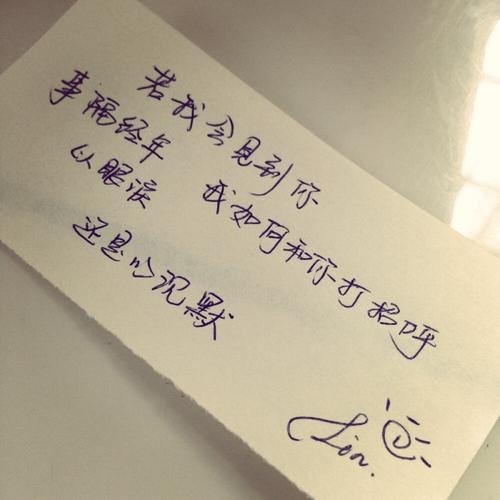 若我会见到你
事隔经年 我如何和你打招呼
以眼泪
还是以沉默
Lin.